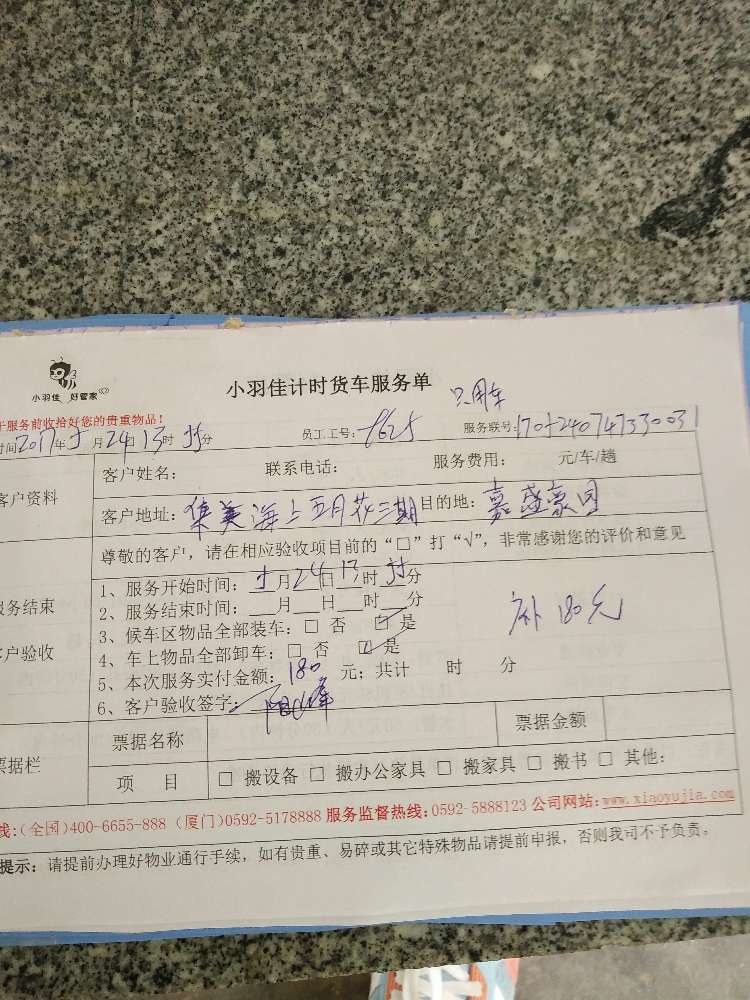 小羽佳 好管家
小羽佳计时货车服务单
只用车
于服务前收拾好您的贵重物品！
时间2017年5月24日13时 分 员工工号： 服务联号：
客户资料
客户姓名： 联系电话： 服务费用： 元/车/趟
客户地址：集美海上五月花三期 目的地：嘉盛豪园
尊敬的客户，请在相应验收项目前的“□”打“√”，非常感谢您的评价和意见
服务结束
客户验收
1、服务开始时间：5月24日13时 分
2、服务结束时间：__月__日__时__分
3、候车区物品全部装车：□ 否 ☑ 是
4、车上物品全部卸车：□ 否 ☑ 是
5、本次服务实付金额：180 元；共计 时 分
6、客户验收签字：
补180元
票据栏
票据名称 票据金额
项 目 □ 搬设备 □ 搬办公家具 □ 搬家具 □ 搬书 □ 其他：
线：(全国)400-6655-888 (厦门)0592-5178888 服务监督热线：0592-5888123 公司网站：www.xiaoyujia.com
提示：请提前办理好物业通行手续，如有贵重、易碎或其它特殊物品请提前申报，否则我司不予负责。